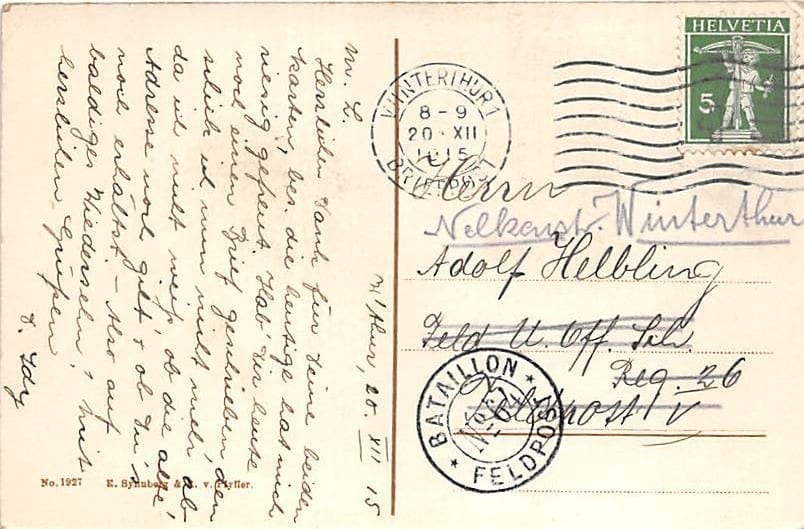 W'thur, 20. XII 15
M. L.
Herzlichen Dank für Deine beiden
Karten, bes. die heutige hat mich
riesig gefreut. Hab' Dir heute
noch einen Brief geschrieben, den
schick ich nun nicht mehr ab
da ich nicht weiß, ob die alte
Adresse noch gilt & ob Du's
noch erhältst. – Also auf
baldiges Wiedersehn, mit
herzlichen Grüßen
Idy
No. 1927 E. Synnberg & v. Pfyffer.
WINTERTHUR 1
8-9
20. XII
1915
BRIEFPOST
HELVETIA
5
Herrn
Nelkenstr. Winterthur
Adolf Helbling
Feld U. Off. Sch.
Reg. 26
Feldpost V
BATAILLON
FELDPOST